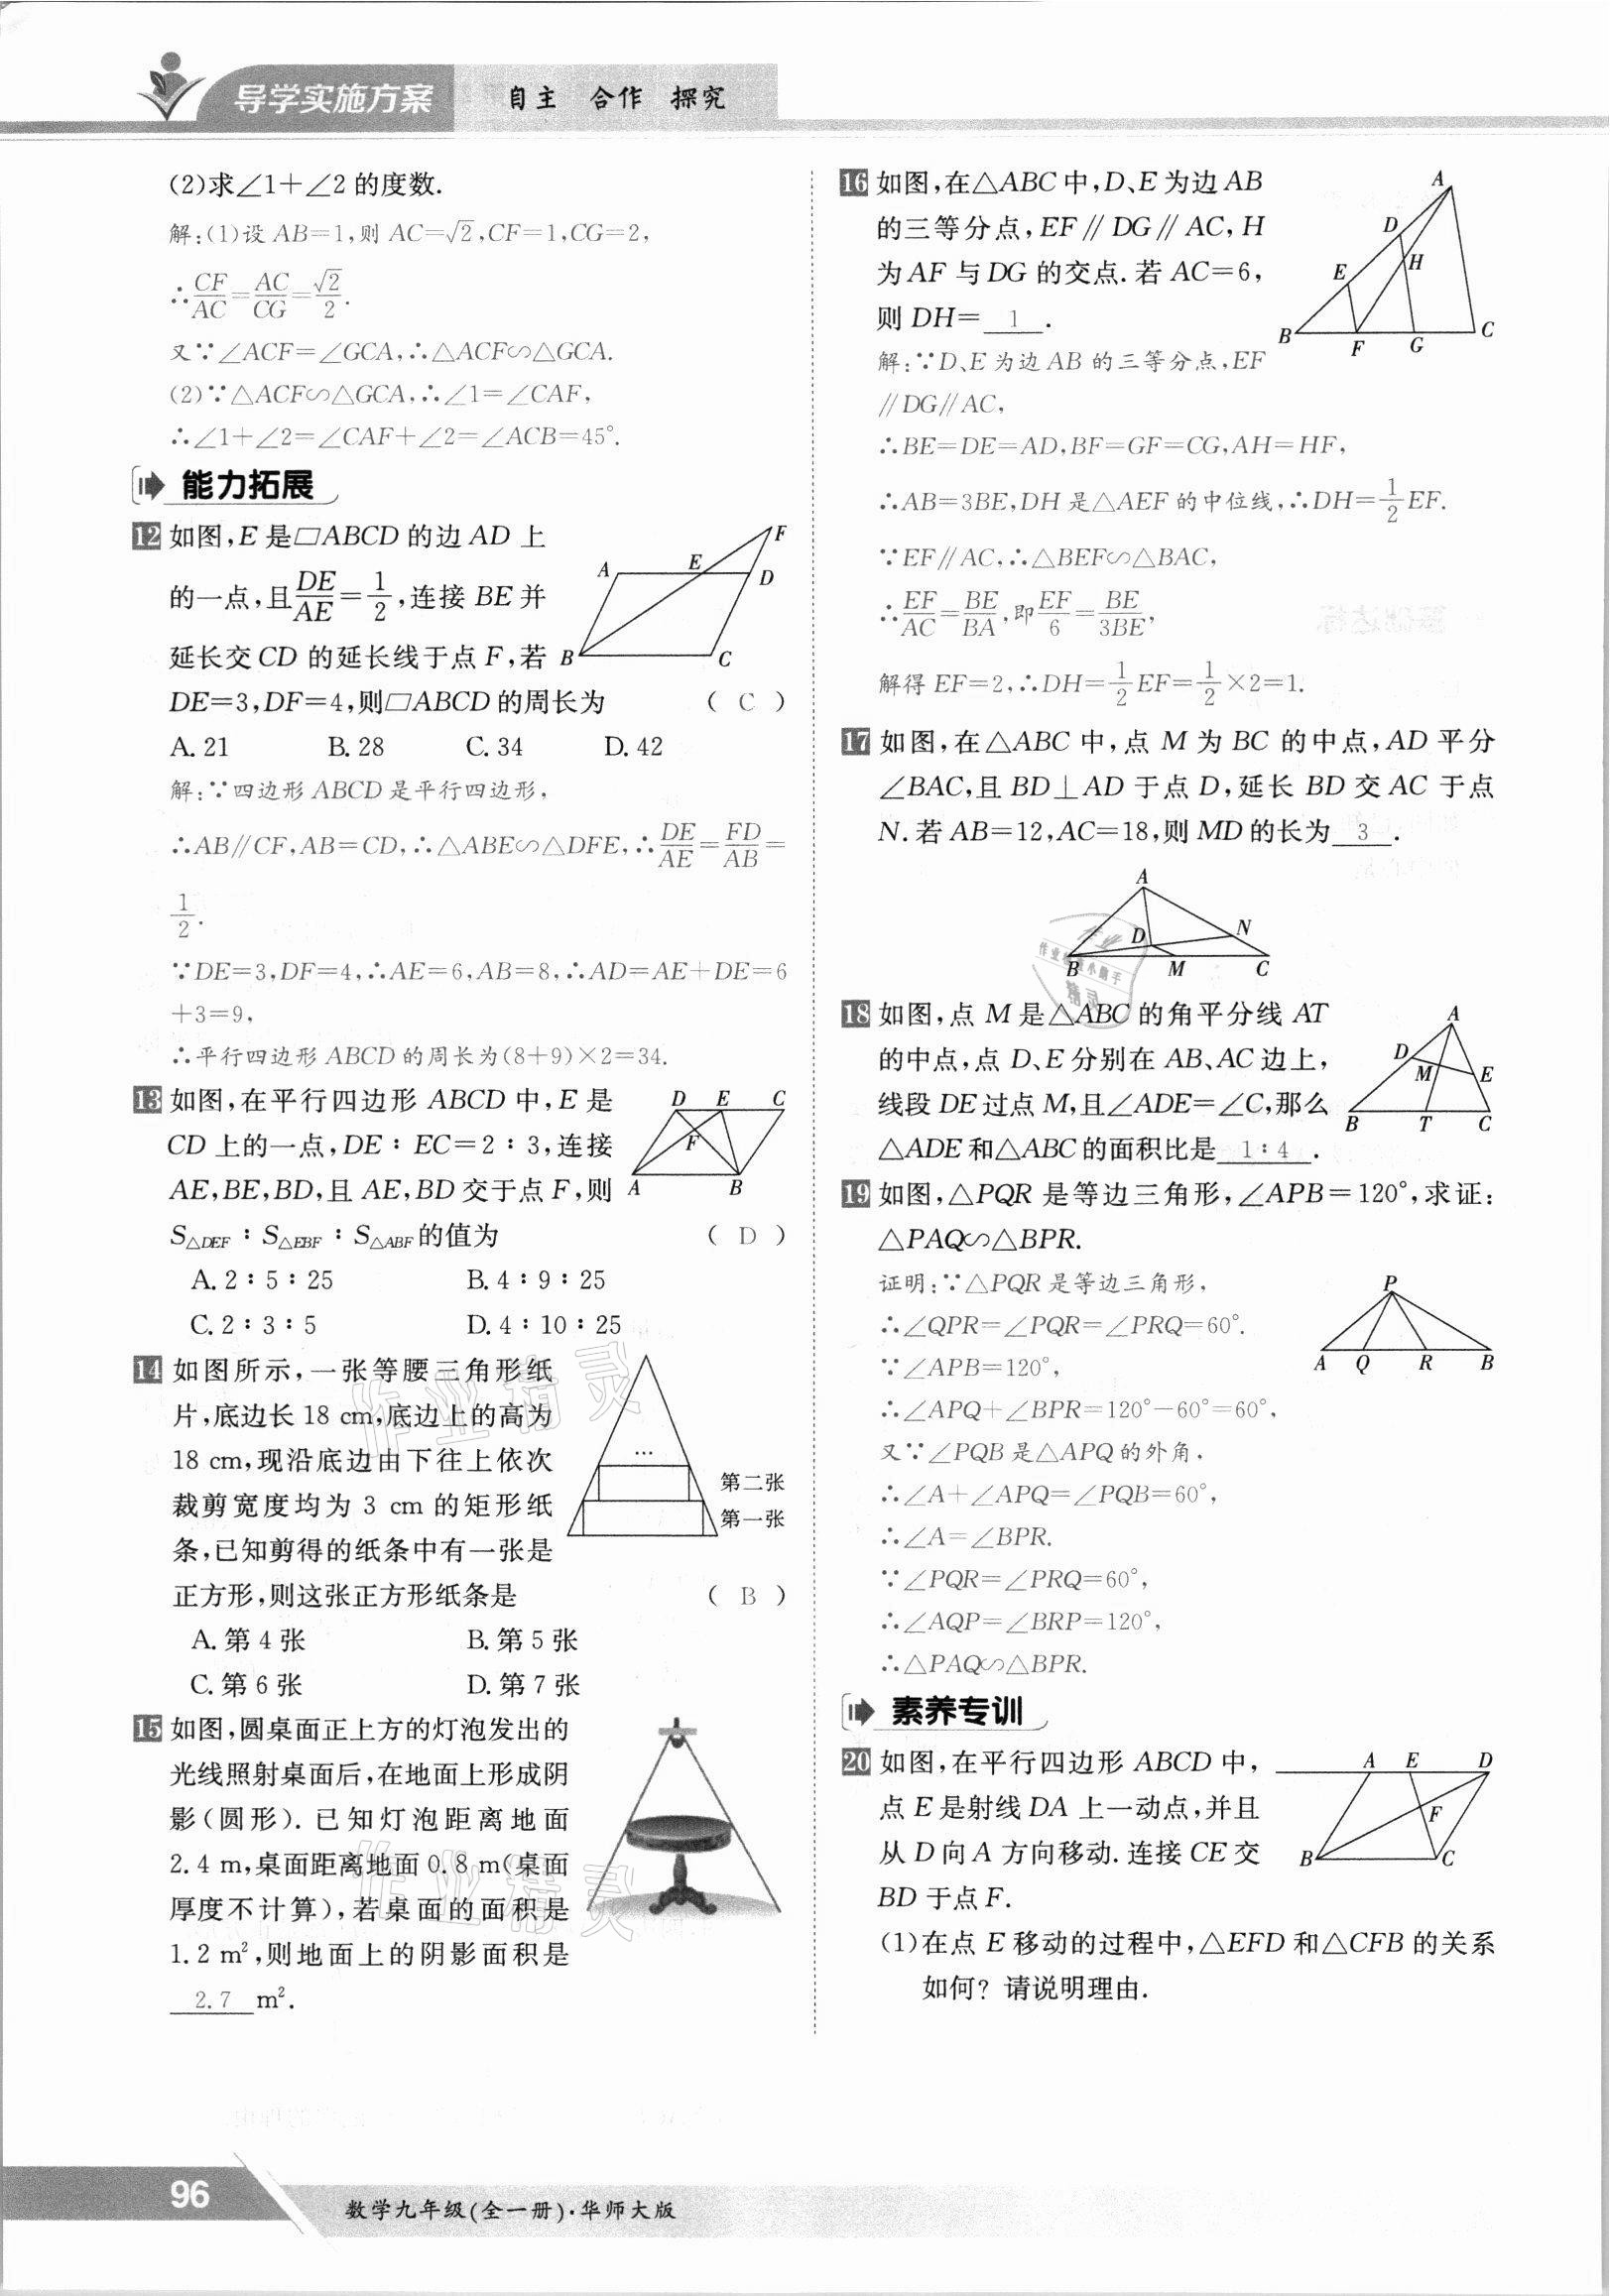 导学实施方案
自主 合作 探究
(2)求∠1+∠2的度数.
解:(1)设AB=1,则AC=√2,CF=1,CG=2,
∴CF/AC=AC/CG=√2/2.
又∵∠ACF=∠GCA,∴△ACF∽△GCA.
(2)∵△ACF∽△GCA,∴∠1=∠CAF,
∴∠1+∠2=∠CAF+∠2=∠ACB=45°.
能力拓展
12 如图,E是▱ABCD的边AD上
的一点,且DE/AE=1/2,连接BE并
延长交CD的延长线于点F,若
DE=3,DF=4,则▱ABCD的周长为 ( C )
A. 21 B. 28 C. 34 D. 42
A E F D B C
解:∵四边形ABCD是平行四边形,
∴AB∥CF,AB=CD,∴△ABE∽△DFE,∴DE/AE=FD/AB=
1/2.
∵DE=3,DF=4,∴AE=6,AB=8,∴AD=AE+DE=6
+3=9,
∴平行四边形ABCD的周长为(8+9)×2=34.
13 如图,在平行四边形ABCD中,E是
CD上的一点,DE∶EC=2∶3,连接
AE,BE,BD,且AE,BD交于点F,则
S△DEF∶S△EBF∶S△ABF的值为 ( D )
A. 2∶5∶25 B. 4∶9∶25
C. 2∶3∶5 D. 4∶10∶25
D E C F A B
14 如图所示,一张等腰三角形纸
片,底边长18 cm,底边上的高为
18 cm,现沿底边由下往上依次
裁剪宽度均为3 cm的矩形纸
条,已知剪得的纸条中有一张是
正方形,则这张正方形纸条是 ( B )
A. 第4张 B. 第5张
C. 第6张 D. 第7张
…
第二张
第一张
15 如图,圆桌面正上方的灯泡发出的
光线照射桌面后,在地面上形成阴
影(圆形).已知灯泡距离地面
2.4 m,桌面距离地面0.8 m(桌面
厚度不计算),若桌面的面积是
1.2 m²,则地面上的阴影面积是
2.7 m².
16 如图,在△ABC中,D、E为边AB
的三等分点,EF∥DG∥AC,H
为AF与DG的交点.若AC=6,
则DH= 1 .
A D H E B F G C
解:∵D、E为边AB的三等分点,EF
∥DG∥AC,
∴BE=DE=AD,BF=GF=CG,AH=HF,
∴AB=3BE,DH是△AEF的中位线,∴DH=1/2EF.
∵EF∥AC,∴△BEF∽△BAC,
∴EF/AC=BE/BA,即EF/6=BE/3BE,
解得EF=2,∴DH=1/2EF=1/2×2=1.
17 如图,在△ABC中,点M为BC的中点,AD平分
∠BAC,且BD⊥AD于点D,延长BD交AC于点
N.若AB=12,AC=18,则MD的长为 3 .
A D N B M C
18 如图,点M是△ABC的角平分线AT
的中点,点D、E分别在AB、AC边上,
线段DE过点M,且∠ADE=∠C,那么
△ADE和△ABC的面积比是 1∶4 .
A D M E B T C
19 如图,△PQR是等边三角形,∠APB=120°,求证:
△PAQ∽△BPR.
证明:∵△PQR是等边三角形,
∴∠QPR=∠PQR=∠PRQ=60°.
∵∠APB=120°,
∴∠APQ+∠BPR=120°-60°=60°,
又∵∠PQB是△APQ的外角,
∴∠A+∠APQ=∠PQB=60°,
∴∠A=∠BPR.
∵∠PQR=∠PRQ=60°,
∴∠AQP=∠BRP=120°,
∴△PAQ∽△BPR.
P A Q R B
素养专训
20 如图,在平行四边形ABCD中,
点E是射线DA上一动点,并且
从D向A方向移动.连接CE交
BD于点F.
(1)在点E移动的过程中,△EFD和△CFB的关系
如何?请说明理由.
A E D F B C
作业精灵
作业精灵
96
数学九年级(全一册)·华师大版